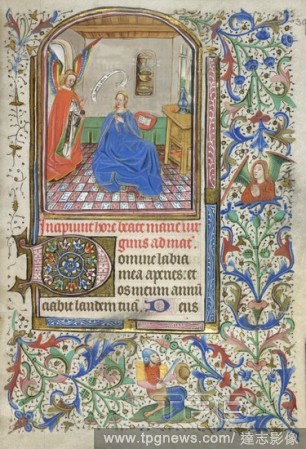 Incipiunt hore beate marie vir
ginis ad mat̄
Domine labia
mea aperies: et
os meum annū
ciabit laudem tuā. Deus
www.tpgnews.com/達志影像